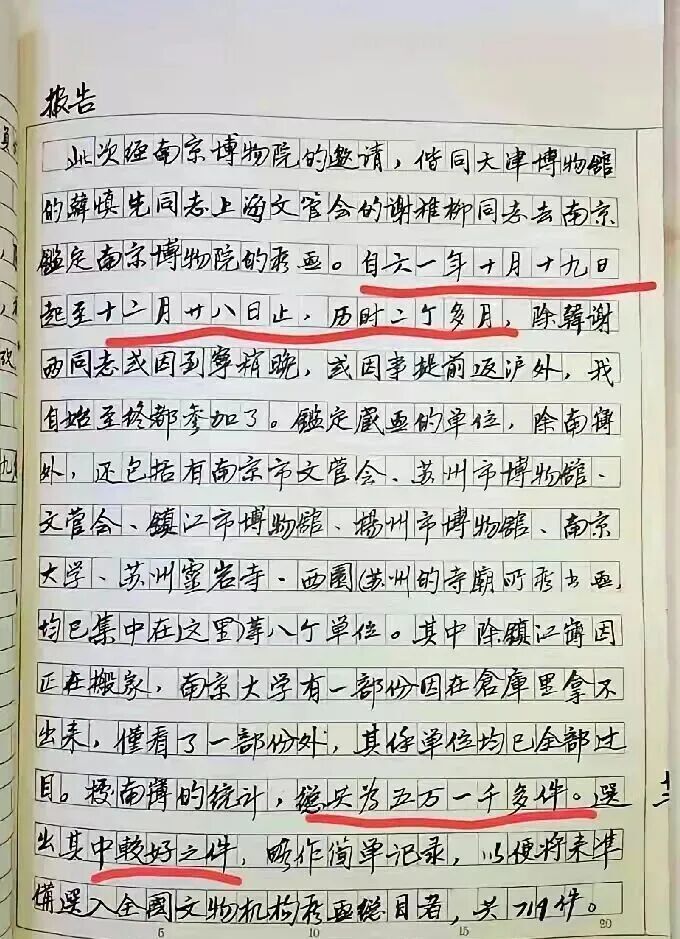 报告
此次经南京博物院的邀请，偕同天津博物館
的韓慎先同志上海文管会的谢稚柳同志去南京
鑑定南京博物院的藏画。自六一年十月十九日
起至十二月廿八日止，历时二个多月，除韓谢
两同志或因到寧稍晚，或因事提前返沪外，我
自始至终都参加了。鑑定藏画的单位，除南博
外，还包括有南京市文管会、苏州市博物館、
文管会、鎮江市博物館、揚州市博物館、南京
大学、苏州靈岩寺·西園(苏州的寺廟所藏书画，
均已集中在这里)等八个单位。其中除鎮江
正在搬家，南京大学有一部份因在倉庫里拿不
出来，僅看了一部份外，其他单位均已全部过
目。据南博的统计，總共为五万一千多件。選
出其中較好之件，略作简单记录，以便将来准
備選入全國文物机构藏画總目者，共719件。
5 10 15 20